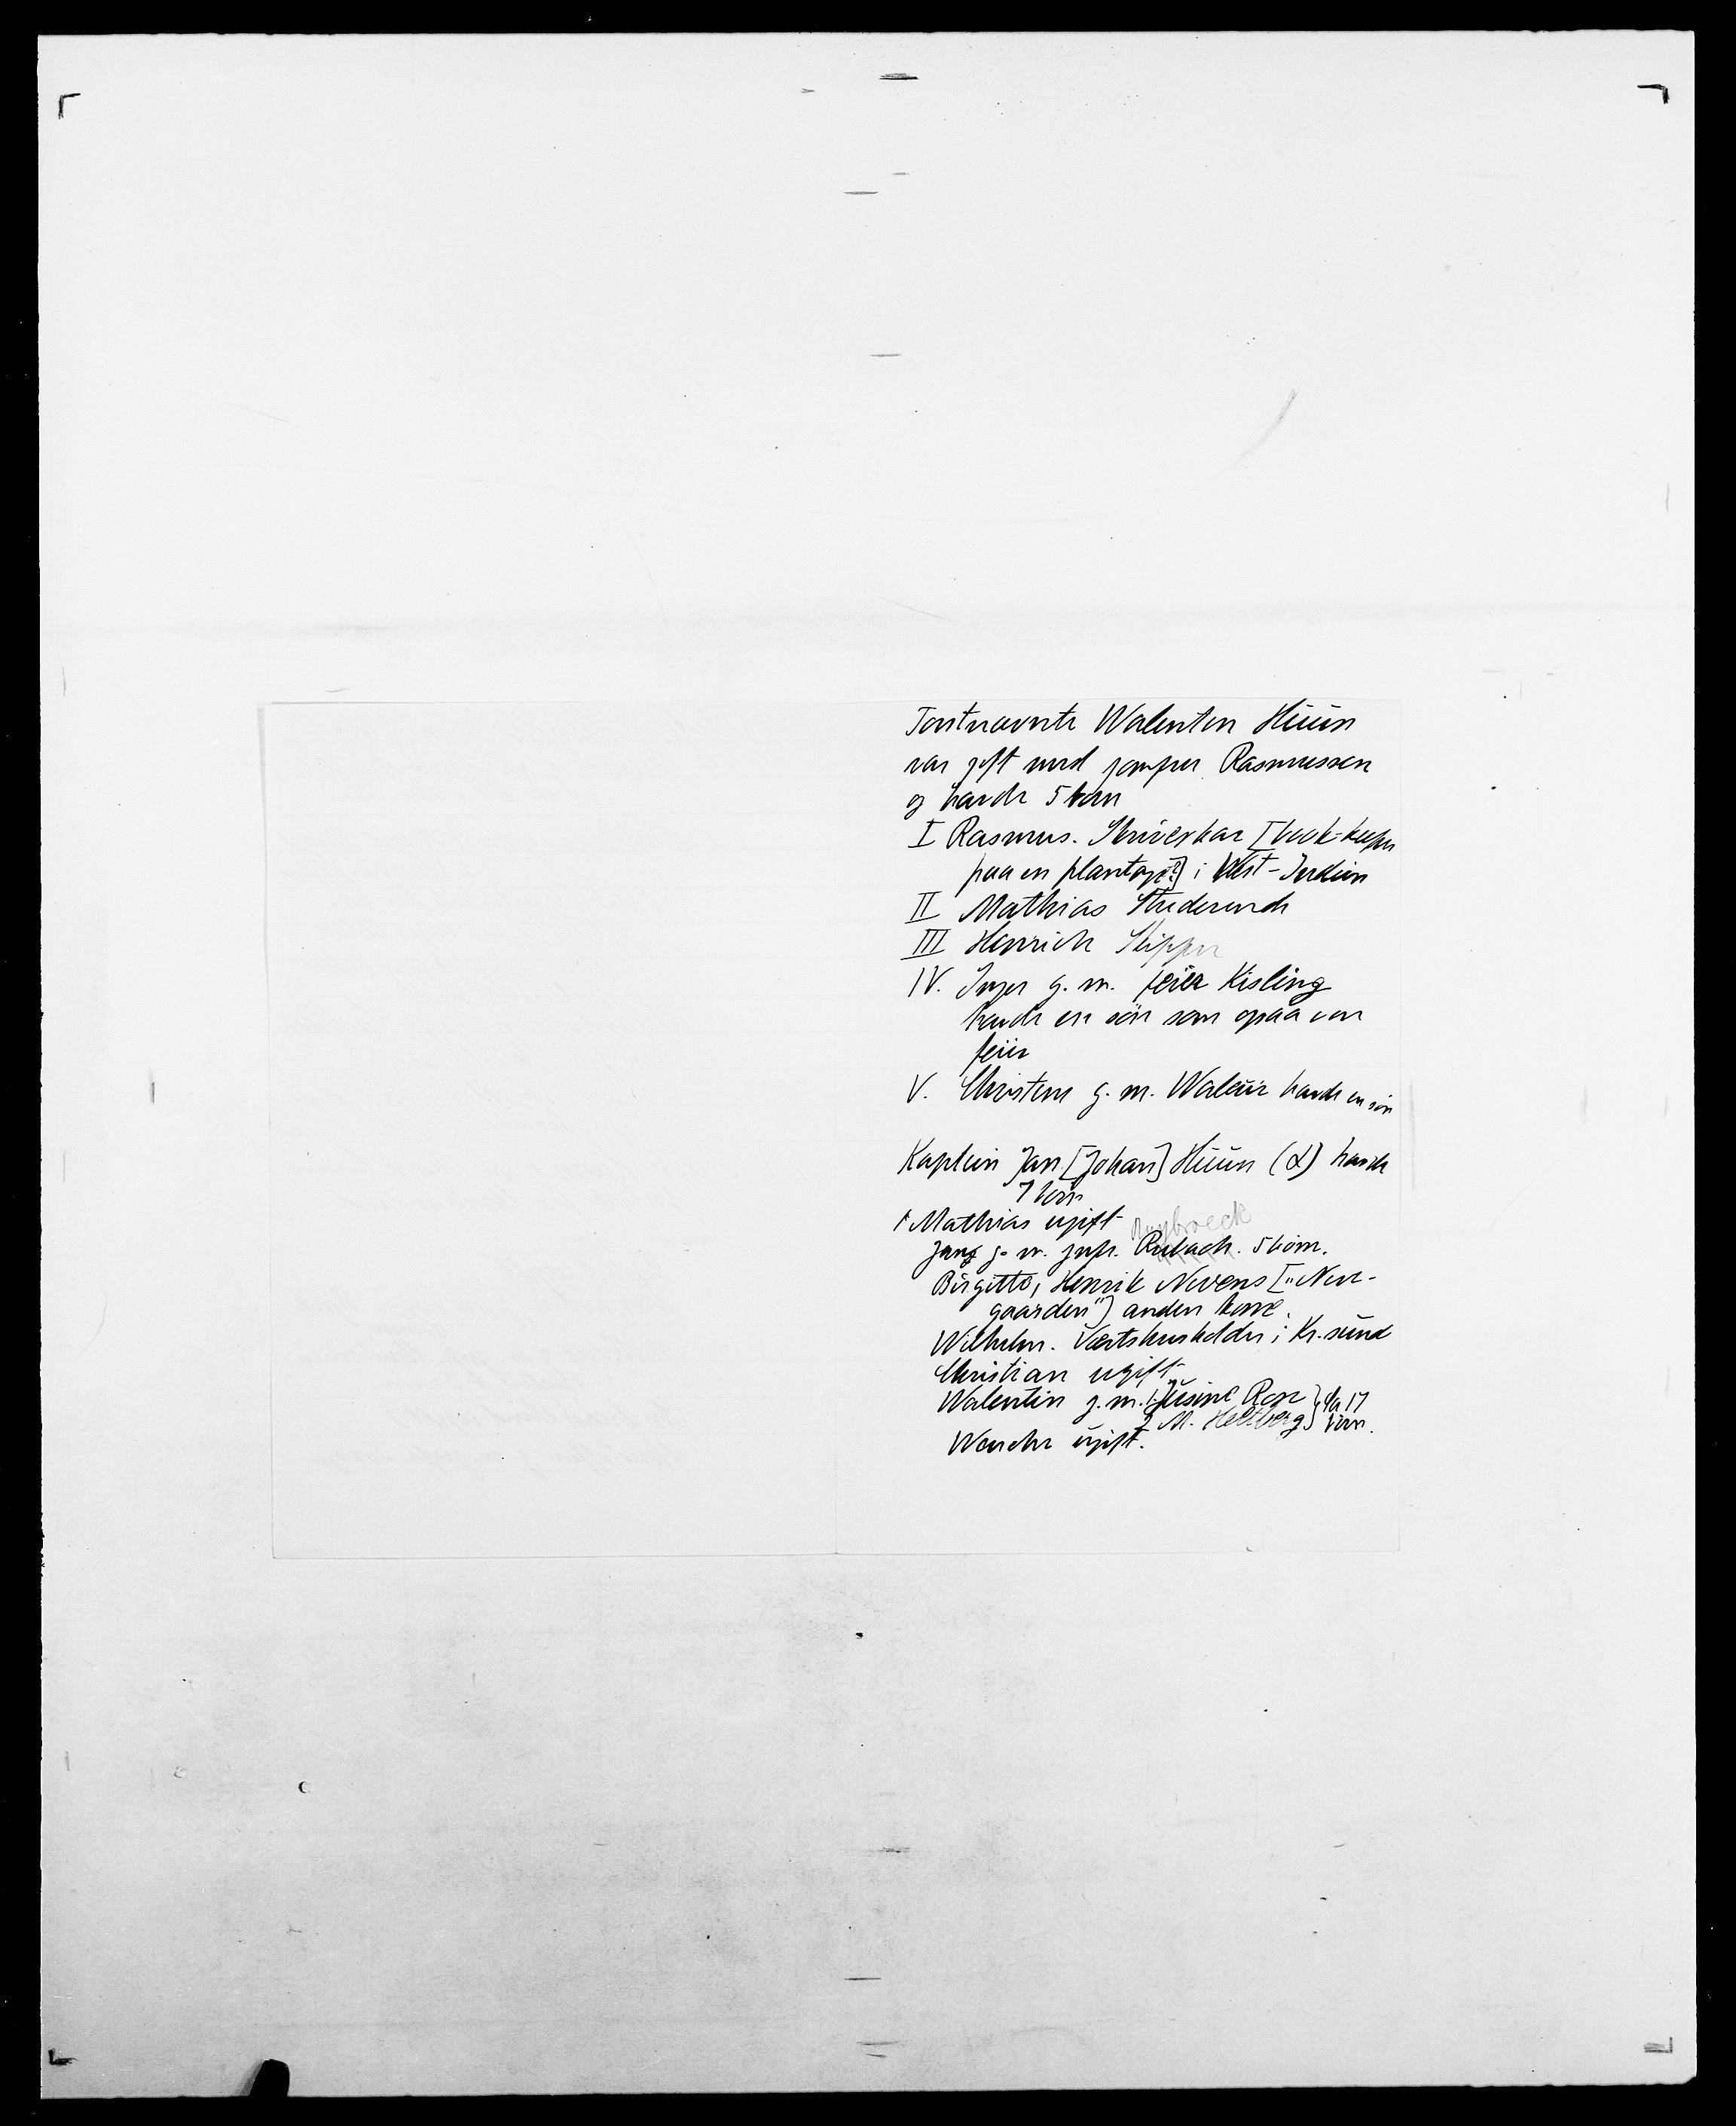 Førstnævnte Walentin Hüün
var gift med jomfru Rasmussen
og havde 5 børn
I Rasmus. Skriverkar [book-keeper
paa en plantage?] i Vest-Indien
II Mathias Studerende
III Henrich Skipper
IV. Inger g. m. feier Kisling
havde en sön som ogsaa var
feier
V. Christine g. m. Waleür havde en sön
Kaptein Jan [Johan] Hüün (α) havde
7 börn
Mathias ugift
Ruybroeck
Jans g. m. jnfr. Rubach. 5 börn.
Birgitte, Henrik Nevens ["Neer-
gaarden"] anden kone.
Wilhelm. Værtshusholder i Kr.sund
Christian ugift
Walentin g. m. 1. Jüsine Rose } da 17
2 M. Heltberg } börn.
Wenche ügift.